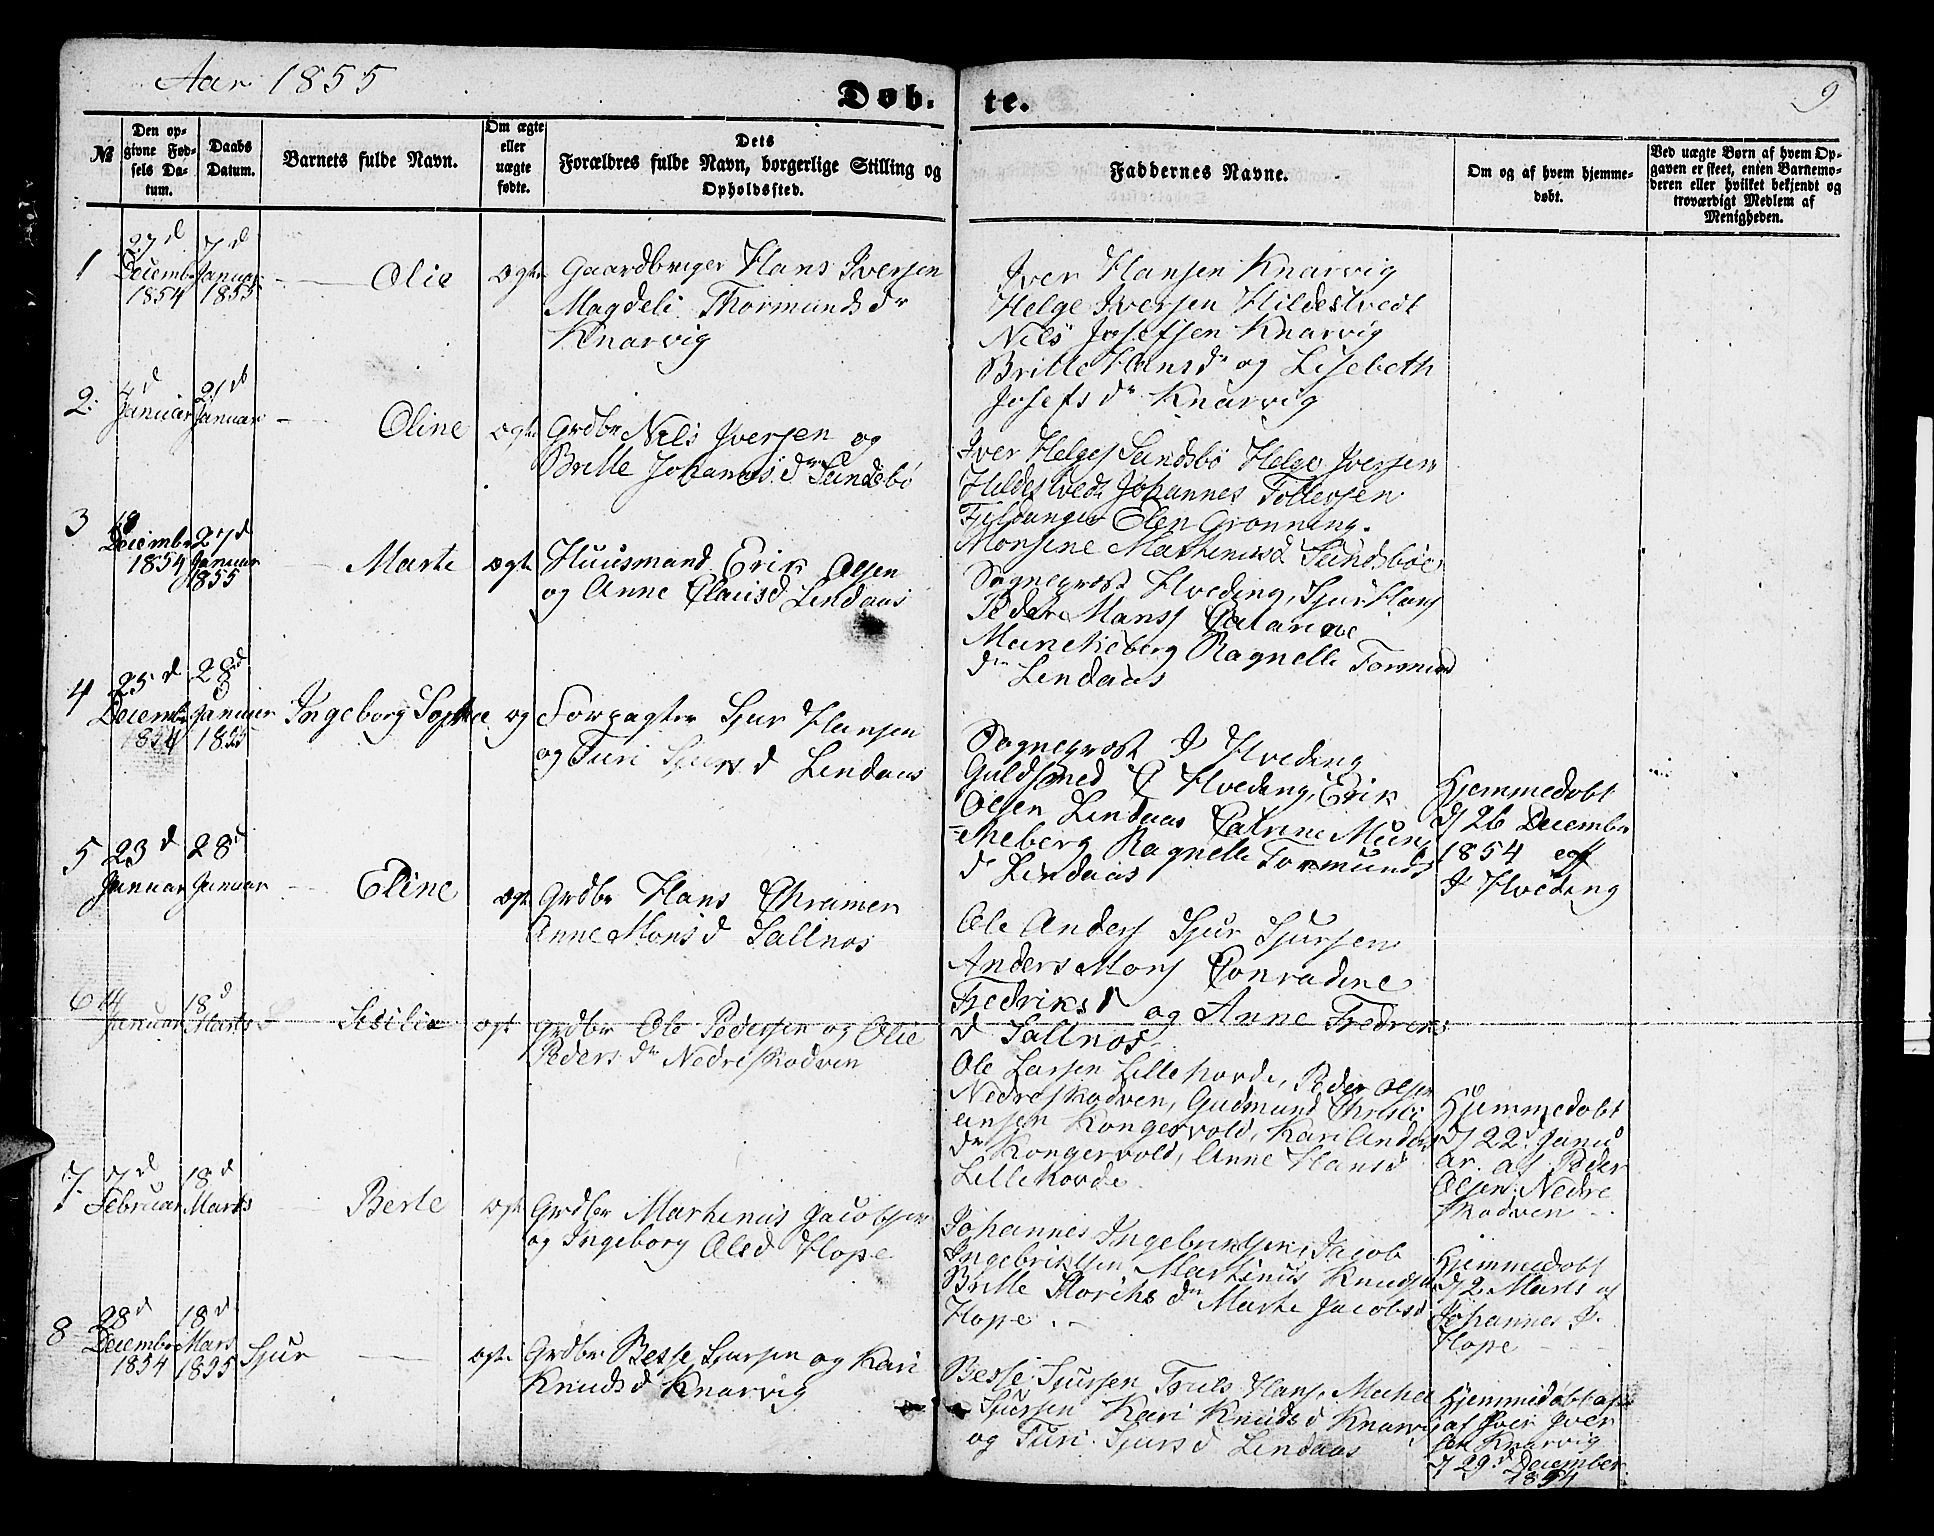 Aar 1855
Døb. te.
9
№
Den opgivne Fødsels Datum.
Daabs Datum.
Barnets fulde Navn.
Om ægte eller uægte fødte.
Dets Forældres fulde Navn, borgerlige Stilling og Opholdssted.
Faddernes Navne.
Om og af hvem hjemmedøbt.
Ved uægte Børn af hvem Opgaven er skeet, enten Barnemoderen eller hvilket bekjendt og troværdigt Medlem af Menigheden.
1
27d
Decemb
1854
7d
Januar
1855
Olie
ægte
Gaardbruger Hans Iversen
Magdeli Thormunds dr
Knarvig
Iver Hansen Knarvig
Helge Iversen Hildestvedt
Nils Josefsen Knarvig
Britte Hansdr og Lisebeth
Josefs dr Knarvig
2.
4d
Januar
21d
Januar
Oline
ægte
Grdbr Nils Iversen og
Britte Johannes dr Sundsbø
Iver Helges Sundsbø Helge Iversen
Hildestvedt Johannes Tollersen
Elen Grønning.
Monsine Martinusd Sundsbøe
3
18
Decembr
1854
27d
Januar
1855
Marte
ægte
Huusmand Erik Olsen
og Anne Clausd Lindaas
Sogneprest Hveding, Sjur Hans
Peder Mons Catarine
Munkeberg Ragnelle Tormund
dr Lindaas
4
25d
Decembr
1854
28d
Januar
1855
Ingeborg Sophie
og
Forpagter Sjur Hansen
og Turi Sjurs d Lindaas
Sogneprest J Hveding
Guldsmed C Hveding, Erik
Olsen Lindaas Catrine Mun
=keberg Ragnelle Tormunds
d Lindaas
Hjemmedøbt
d 26 Decembr
1854 af
J Hveding
5
23d
Januar
28d
Januar
Eline
ægt
Grdbr Hans Chramer
Anne Mons d Saltnes
Ole Anders Sjur Sjursen
Anders Mons Conradine
Fredriks d og Anne Fredriks
d Saltnes
6
14
Januar
18d
Marts
Sisilie
ægt
Grdbr Ole Pedersen og Olie
Peders dr Nedreskodven
Ole Larsen Lillehorde, Peder Olsen
Nedreskodven, Gudmund Christi
ansen Kongesvold, Kari Anders
dr Kongesvold, Anne Hansd
Lillehorde
Hjemmedøbt
d 22d Janu
ar. af Peder
Olsen Nedre
skodven
7.
7d
Februar
18d
Marts
Berte
ægt
Grdbr Martinus Jacobsen
og Ingeborg Olsd Hope
Johannes Ingebrigtsen, Jacob
Ingebriktsen Martinus Knuds
Britte dr Marte Jacobsd
Hope.
Hjemmedøbt
d 2 Marts af
Johannes I.
Hope
8
28d
Decembr
1854
18d
Mars
1855
Sjur
ægte
Grdbr Besse Sjursen og Kari
Knuds d Knarvig
Besse Sjursen Truls Hans, Mikel
Sjursen Kari Knuds d Knarvig
og Turi Sjurs d Lindaas
Hjemmedøbt
af Iver Iver
sen Knarvig
d 29d December
1854